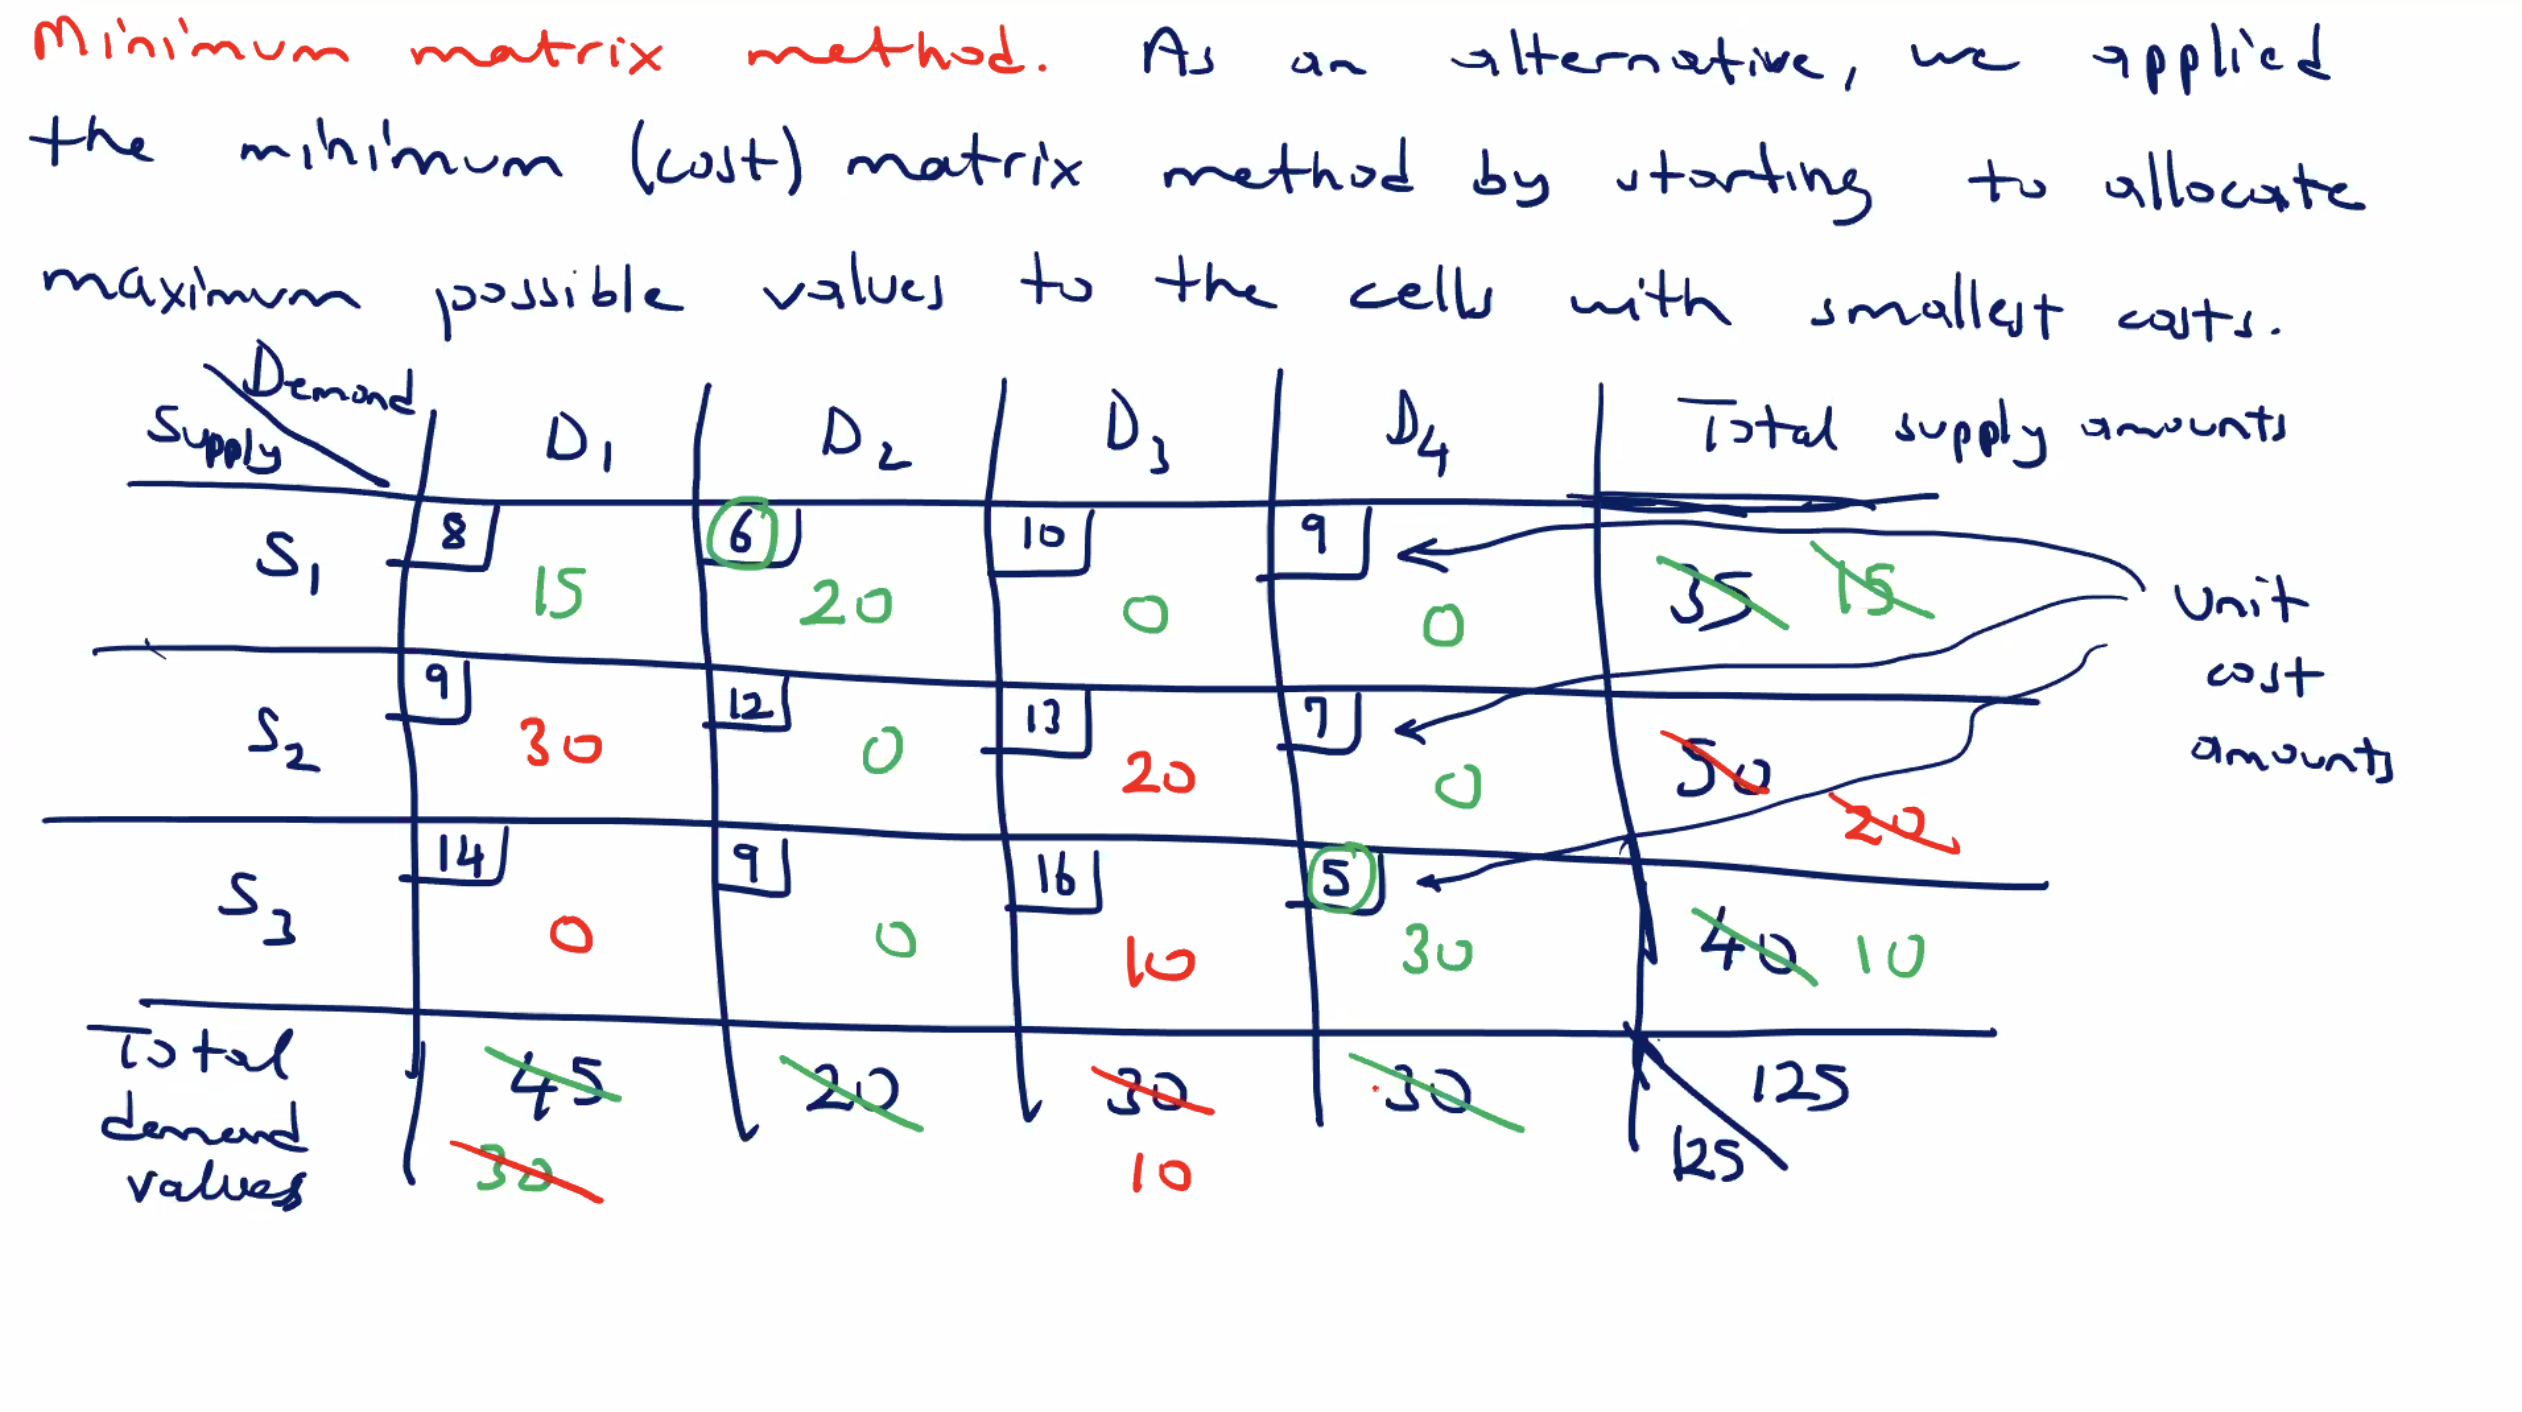 Minimum matrix method. As an alternative, we applied
the minimum (cost) matrix method by starting to allocate
maximum possible values to the cells with smallest costs.
Demand
Supply D1 D2 D3 D4 Total supply amounts
8 6 10 9
S1 15 20 0 0 35 15
unit
cost
amounts
9 12 13 7
S2 30 0 20 0 50 20
14 9 16 5
S3 0 0 10 30 40 10
Total
demand
values
45 20 30 30 125
30 10 125